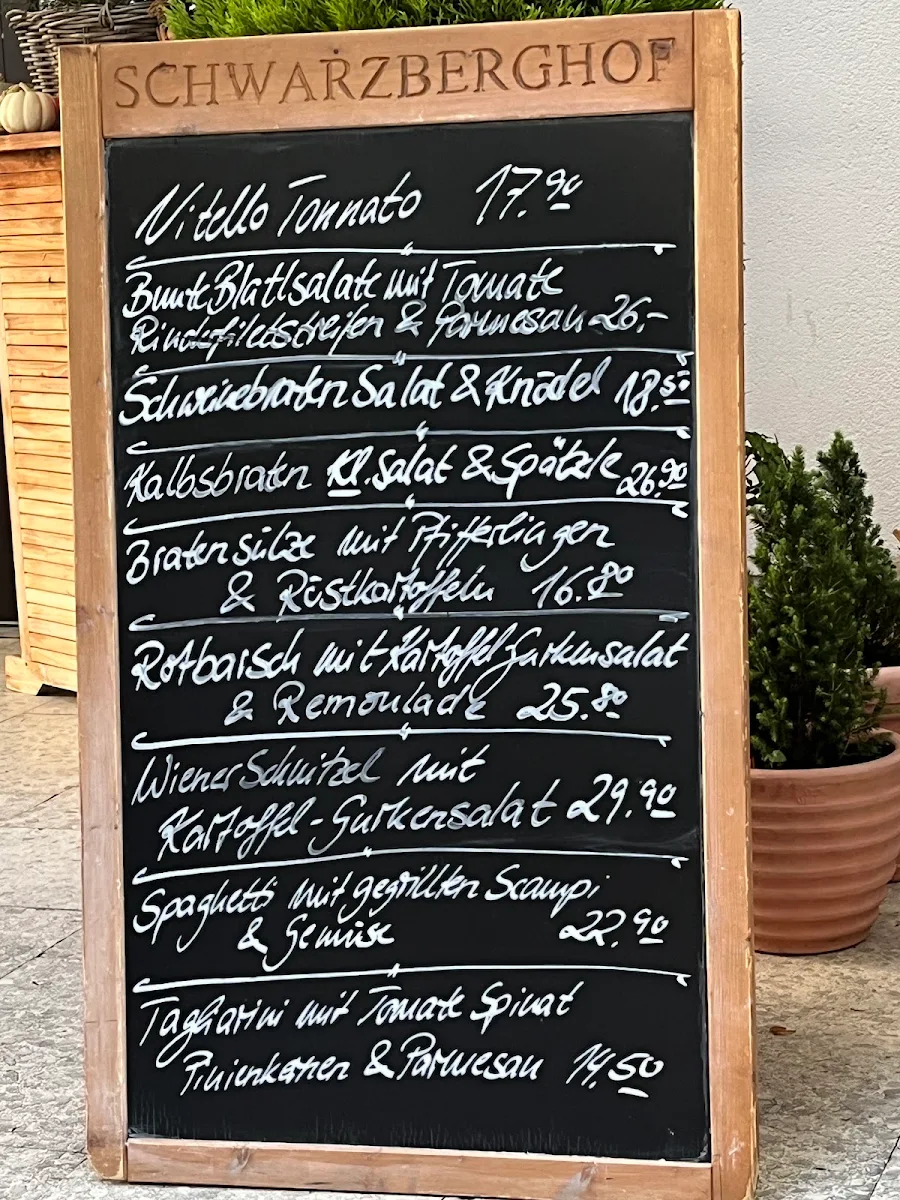 SCHWARZBERGHOF
Vitello Tonnato 17.90
Bunte Blattsalate mit Tomate
Rindsfiletstreifen & Parmesan 26,-
Schweinebraten Salat & Knödel 18.50
Kalbsbraten Kl. Salat & Spätzle 26.90
Bratensülze mit Pfifferlingen
& Röstkartoffeln 16.80
Rotbarsch mit Kartoffel Gurkensalat
& Remoulade 25.80
Wiener Schnitzel mit
Kartoffel-Gurkensalat 29.90
Spaghetti mit gegrillten Scampi
& Gemüse 22.90
Tagliarini mit Tomate Spinat
Pinienkernen & Parmesan 14.50